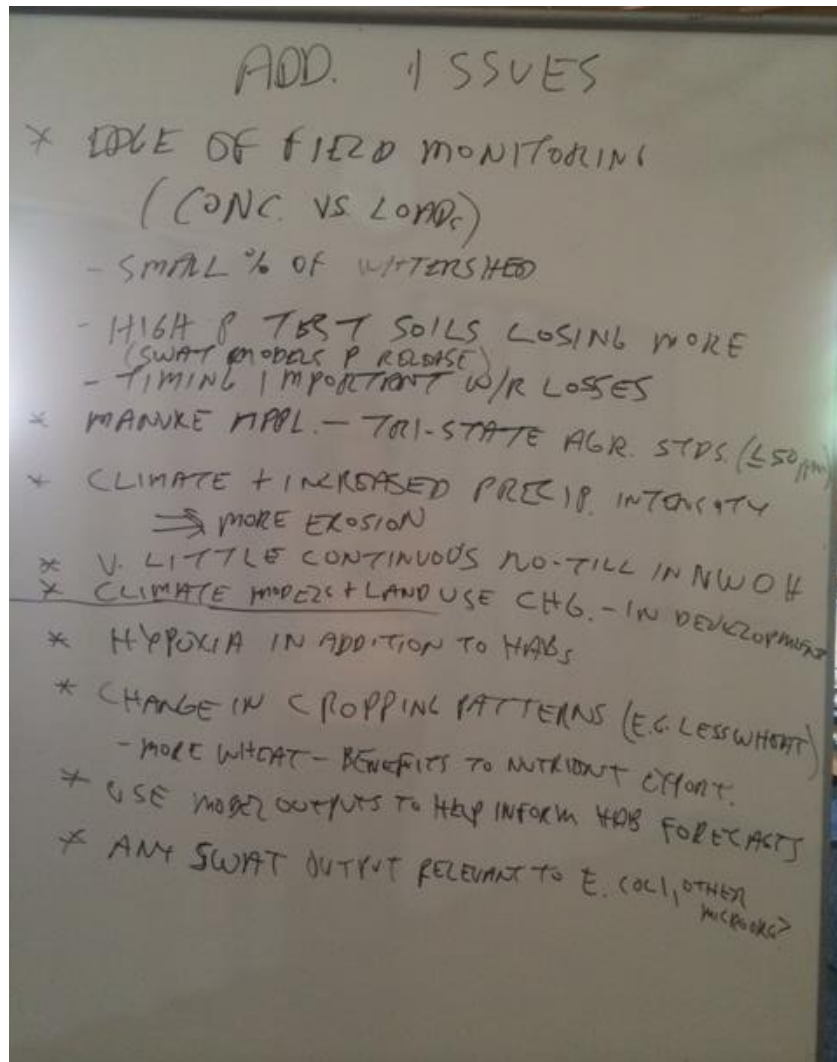 ADD. ISSUES
* EDGE OF FIELD MONITORING
(CONC. VS. LOADS)
- SMALL % OF WATERSHED
- HIGH P TEST SOILS LOSING MORE
(SWAT MODELS P RELEASE)
- TIMING IMPORTANT W/R LOSSES
* MANURE APPL. - TRI-STATE AGR. STDS. (≤50 ppm)
* CLIMATE + INCREASED PRECIP. INTENSITY
⇒ MORE EROSION
* V. LITTLE CONTINUOUS NO-TILL IN NWOH
* CLIMATE MODELS + LAND USE CHG. - IN DEVELOPMENT
* HYPOXIA IN ADDITION TO HABs
* CHANGE IN CROPPING PATTERNS (E.G. LESS WHEAT)
- MORE WHEAT - BENEFITS TO NUTRIENT EFFORT.
* USE MODEL OUTPUTS TO HELP INFORM HAB FORECASTS
* ANY SWAT OUTPUT RELEVANT TO E. COLI, OTHER
MICROORG?